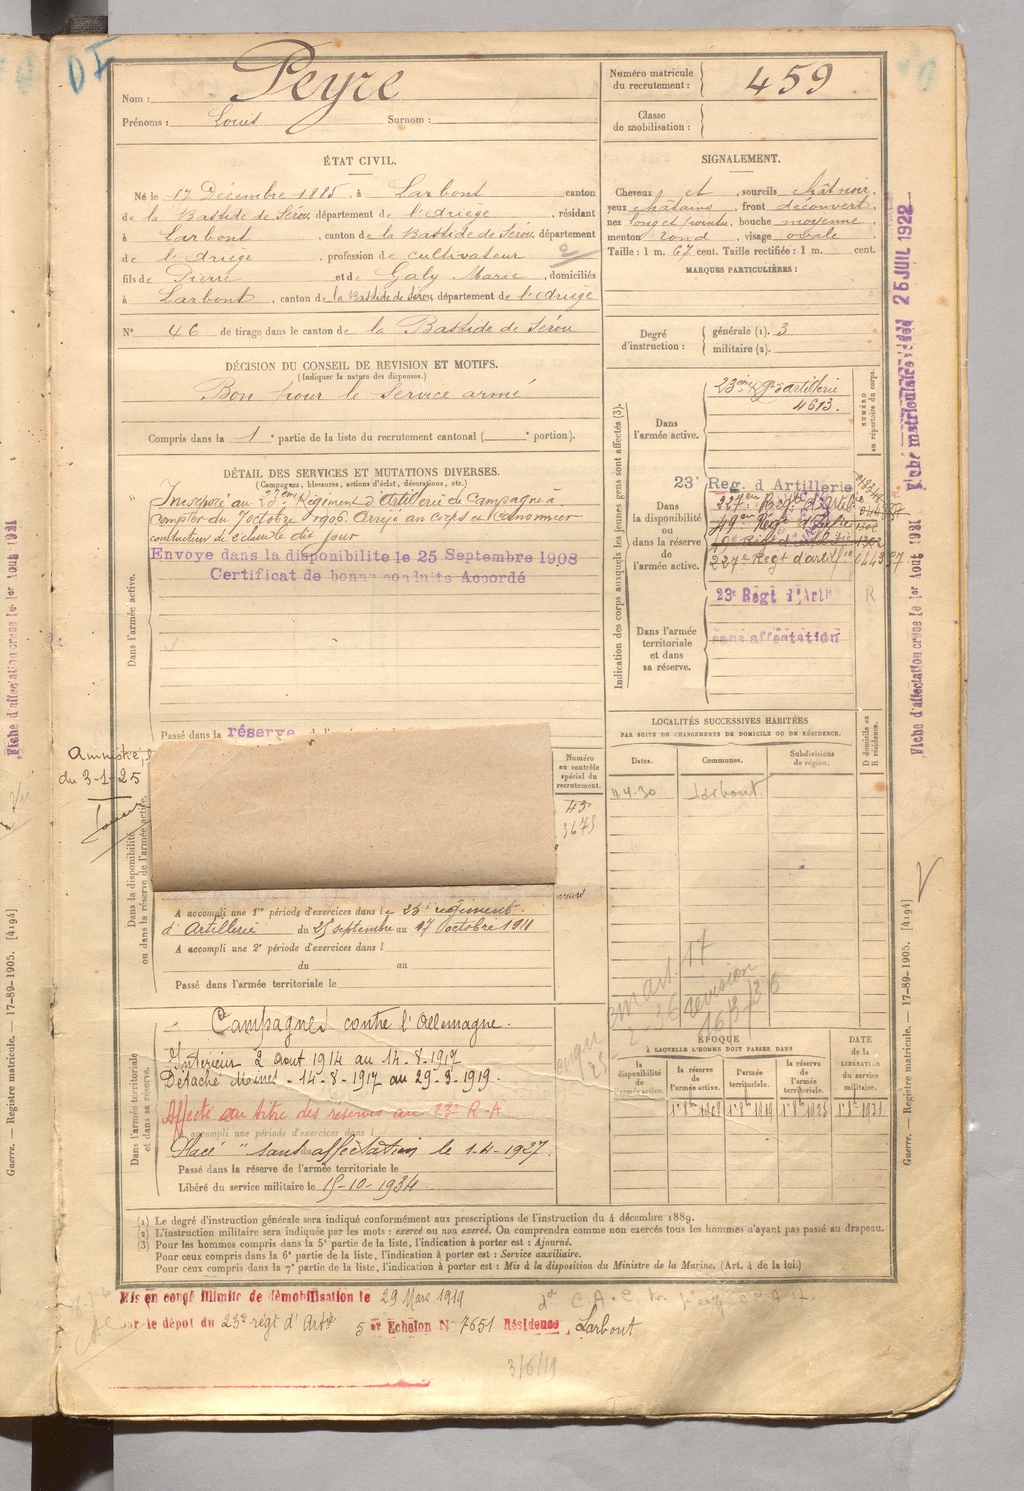 Nom : Peyre
Prénoms : Louis Surnom :
Numéro matricule
du recrutement : 459
Classe
de mobilisation :
ÉTAT CIVIL.
Né le 17 Décembre 1885, à Larbont canton
de la Bastide de Sérou, département de l'Ariège, résidant
à Larbont, canton de la Bastide de Sérou, département
de l'Ariège, profession de cultivateur
fils de Pierre et de Galy Marie, domiciliés
à Larbont, canton de la Bastide de Sérou, département de l'Ariège
N° 46 de tirage dans le canton de la Bastide de Sérou
SIGNALEMENT.
Cheveux et sourcils chât noir,
yeux châtains, front découvert,
nez long et pointu, bouche moyenne
menton rond, visage ovale
Taille : 1 m. 67 cent. Taille rectifiée : 1 m. cent.
MARQUES PARTICULIÈRES :
Degré
d'instruction :
générale (1). 3
militaire (2).
DÉCISION DU CONSEIL DE REVISION ET MOTIFS.
(Indiquer la nature des dispenses.)
Bon pour le Service armé
Compris dans la 1e partie de la liste du recrutement cantonal ( e portion).
DÉTAIL DES SERVICES ET MUTATIONS DIVERSES.
(Campagnes, blessures, actions d'éclat, décorations, etc.)
Dans l'armée active.
Incorporé au 23ème Régiment d'Artillerie de Campagne à
compter du 7 octobre 1906. Arrivé au corps et canonnier
conducteur de 2e classe dit jour
Envoyé dans la disponibilité le 25 Septembre 1908
Certificat de bonne conduite Accordé
Passé dans la réserve
Amnistié
du 3-1-25
Dans la disponibilité
ou dans la réserve de l'armée active.
Numéro
au contrôle
spécial du
recrutement.
43
3675
A accompli une 1re période d'exercices dans le 23e régiment
d'Artillerie du 25 septembre au 17 octobre 1911
A accompli une 2e période d'exercices dans l
du au
Passé dans l'armée territoriale le
Dans l'armée territoriale
et dans sa réserve.
Campagnes contre l'Allemagne.
Intérieur 2 aout 1914 au 14-8-1917
Détaché Mines - 14-8-1917 au 29-3-1919.
Affecté au titre des réserves au 23e R.A.
accompli une période d'exercices dans l
Placé " sans affectation le 1-4-1927.
Passé dans la réserve de l'armée territoriale le
Libéré du service militaire le 15-10-1934
Indication des corps auxquels les jeunes gens sont affectés (3).
NUMÉRO
au répertoire du corps.
Dans
l'armée active.
23ème Rgt d'artillerie
4613.
Dans
la disponibilité
ou dans
la réserve
de
l'armée active.
23e Reg. d Artillerie
227e Regt d'artil
044397
Dans l'armée
territoriale
et dans
sa réserve.
23e Régt d'Arti
R
sans affectation
LOCALITÉS SUCCESSIVES HABITÉES
PAR SUITE DE CHANGEMENTS DE DOMICILE OU DE RÉSIDENCE.
D domicile ou
R résidence.
Dates.
Communes.
Subdivisions
de région.
11.4.30 Larbont
art. 17
revision
16/3/36
ÉPOQUE
À LAQUELLE L'HOMME DOIT PASSER DANS
la
disponibilité
de
l'armée active.
la réserve
de
l'armée active.
l'armée
territoriale.
la réserve
de
l'armée
territoriale.
DATE
de la
LIBÉRATION
du service
militaire.
(1) Le degré d'instruction générale sera indiqué conformément aux prescriptions de l'instruction du 4 décembre 1889.
(2) L'instruction militaire sera indiquée par les mots : exercé ou non exercé. On comprendra comme non exercés tous les hommes n'ayant pas passé au drapeau.
(3) Pour les hommes compris dans la 5e partie de la liste, l'indication à porter est : Ajourné.
Pour ceux compris dans la 6e partie de la liste, l'indication à porter est : Service auxiliaire.
Pour ceux compris dans la 7e partie de la liste, l'indication à porter est : Mis à la disposition du Ministre de la Marine. (Art. 4 de la loi.)
Mis en congé illimité de démobilisation le 29 Mars 1919
par le dépot du 23e régt d'Artie 5 er Echelon N° 7651 Résidence, Larbont
3/6/19
Fiche d'affectation créée le 1er Aout 1931
Fiche matriculaire 25 JUIL 1922
Guerre. — Registre matricule. — 17-89-1905. [4194]
Fiche d'affectation créée le 1er Aout 1931
Guerre. — Registre matricule. — 17-89-1905. [4194]